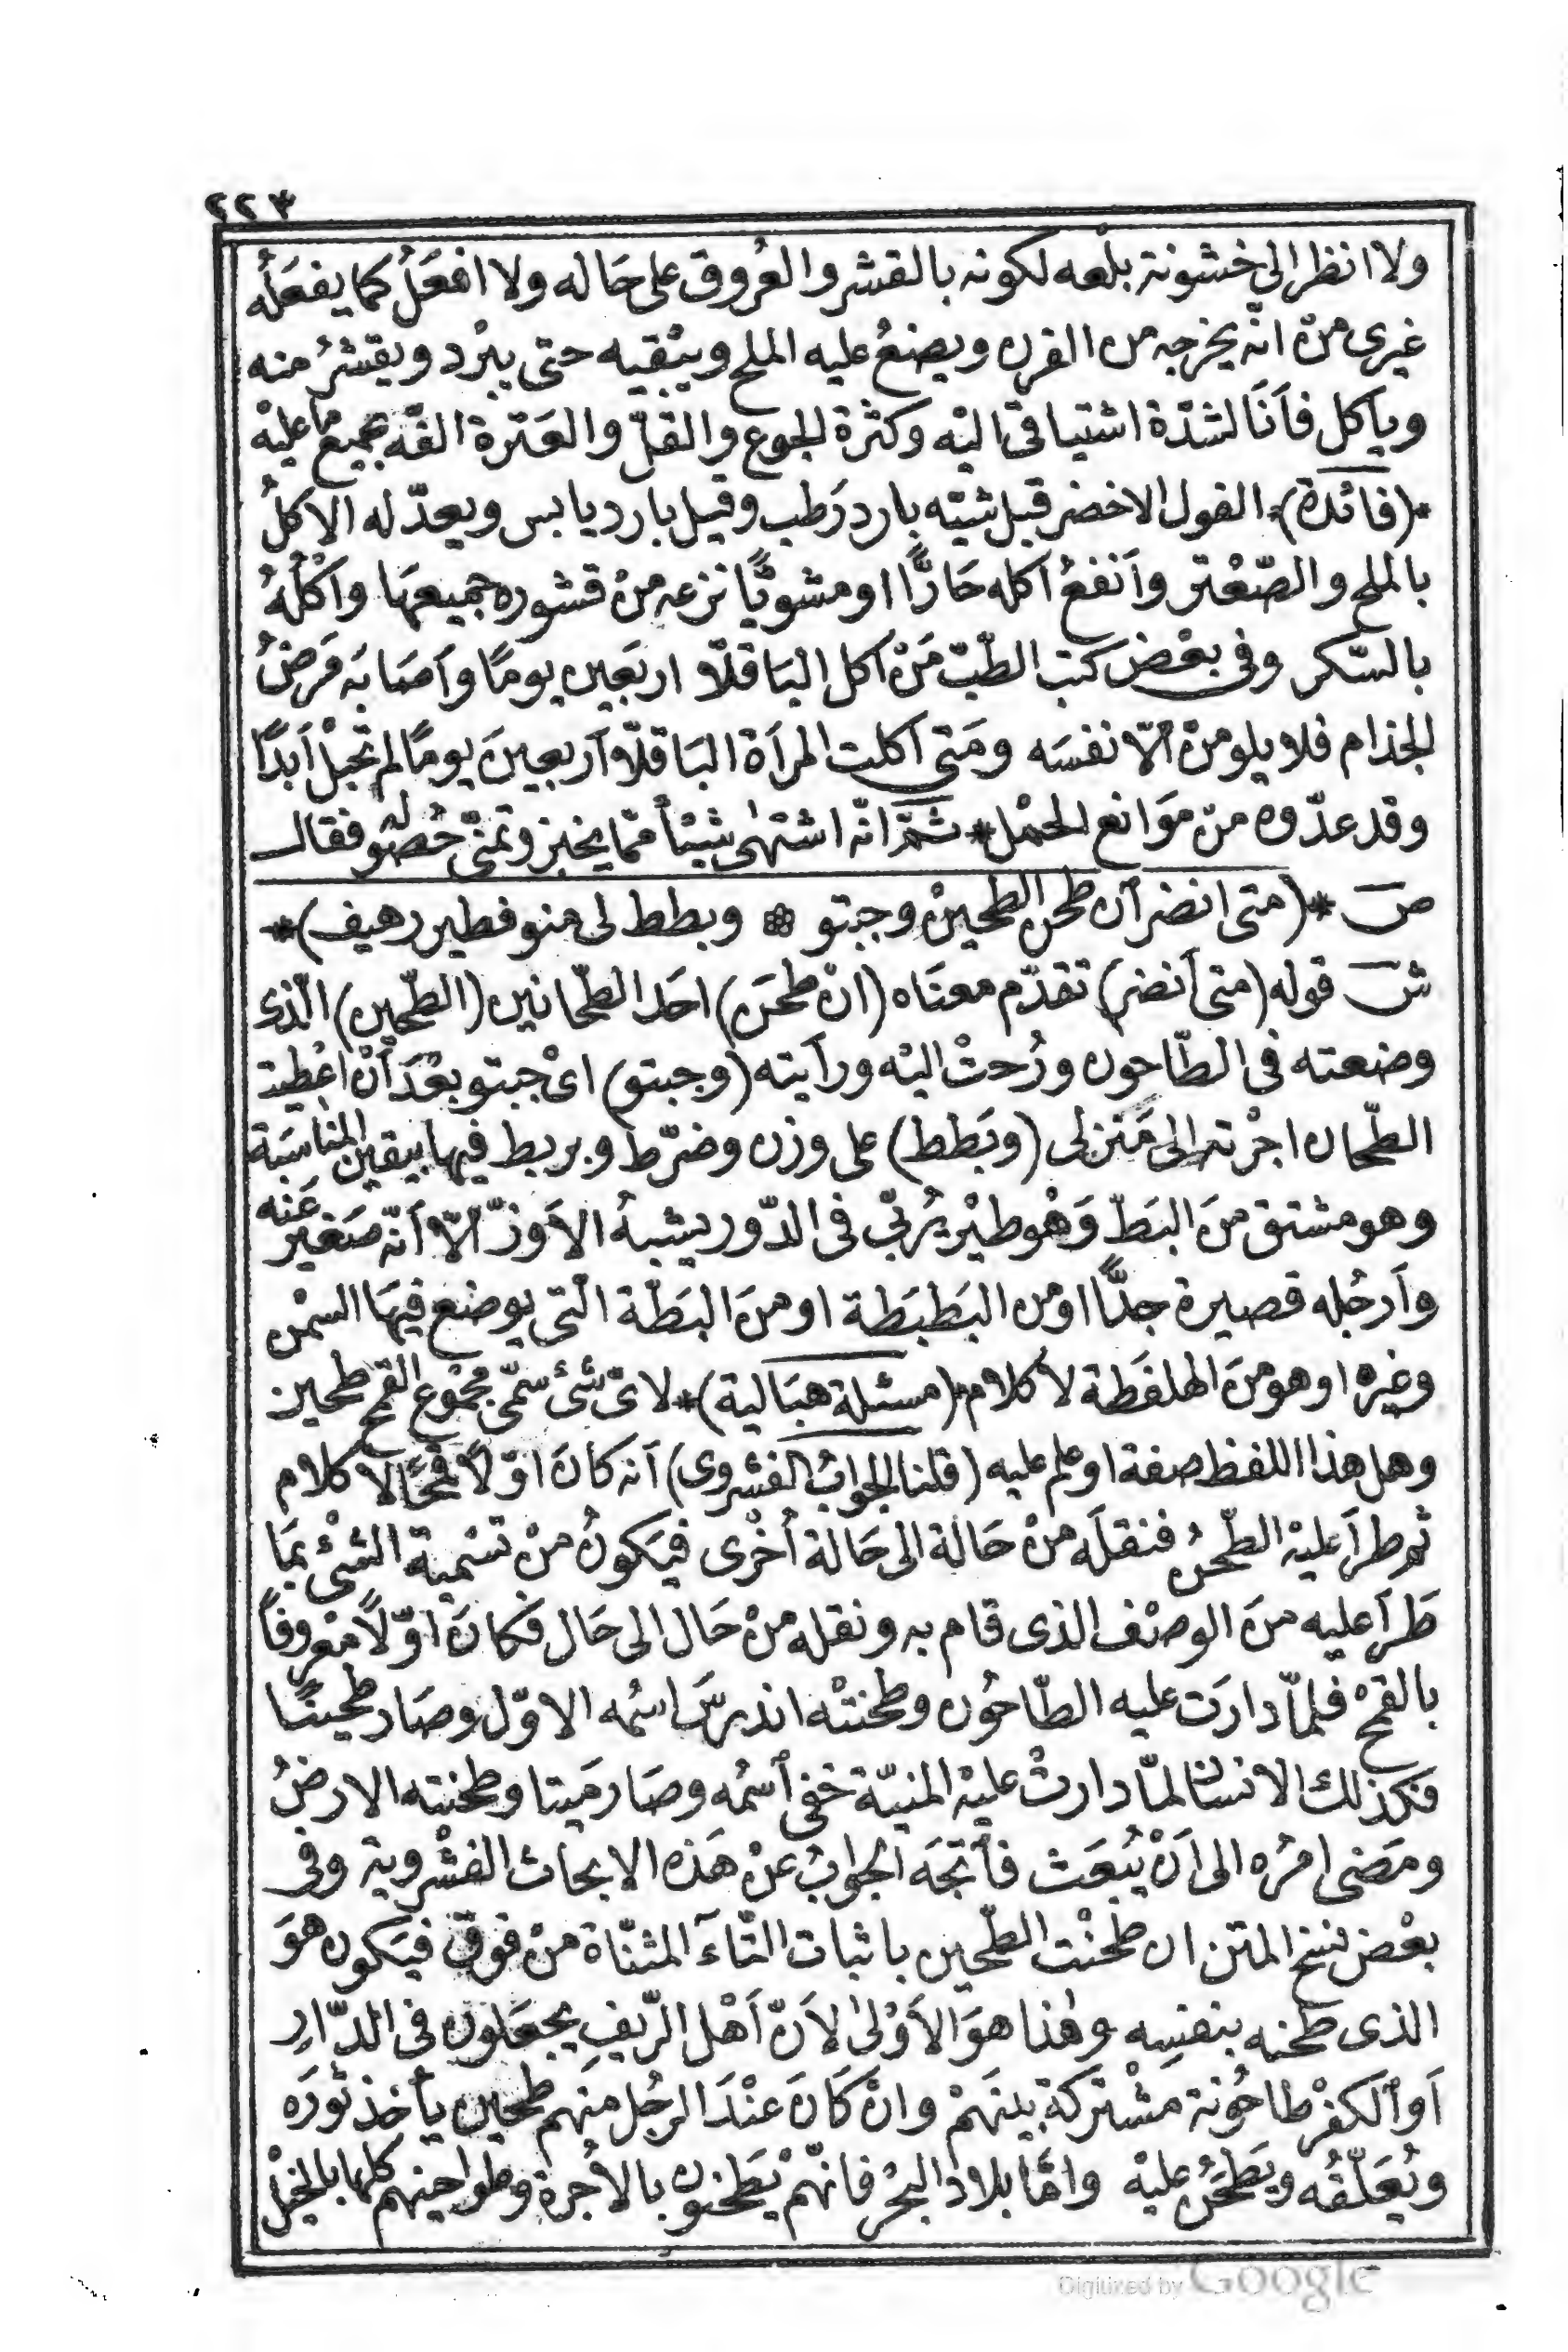 ٢٢٣
ولا انظر الى خشونة بلعه لكونه بالقشر والعُروق على حَاله ولا افعَلُ كما يفعَلُه
غيرى منْ انّه يخرجه من الفرن ويضعُ عليه الملح ويبْقيه حتى يبْرد ويقشرُ منه
وياكل فاَنَا لشدّة اشتياقى اليْه وكثرة الجوع والقلّ والعَترة القّه بجميع ما عليْه
*(فائدة)* الفول الاخضر قبل شيّه بارد رَطب وقيل بارد يابس ويعدّ له الاكلُ
بالملح والصّعْتر واَنفعُ اكله حَارًّا او مشويًّا نزعه منْ قشوره جميعهَا واكْلُهُ
بالسّكر وفى بعْض كتب الطّبّ مَنْ اكل البَاقلّا اربَعين يومًا واَصَابَه مَرَضُ
الجذام فلا يلومنْ الّا نفسَه ومَتى اكلت المرأة البَاقلّا اَربعينَ يومًا لم تحبلْ اَبدًا
وقد عدّوه منْ مَوَانع الحمْل * ثمّ انّه اشتهٰى شيئاً ممّا يخبز وتمنّى حُضوره له فقال
ص *(متى انضر ان طحن الطحينْ وجبتو ۞ وبطط لى منو فطير رهيف)*
ش قوله (متى اَنضر) تقدّم معنَاه (انْ طحَن) احَد الطّحانين (الطّحين) الّذى
وضعته فى الطّاحون ورُحتْ اليْه ورأيته (وجبتو) اىْ جبتو بعْدَ أنْ اعْطيت
الطّحان اجْرته الى مَنْزلى (وبَطط) على وزن وضرّط وبربط فيها بيقين المناسَبَة
وهو مشتق منَ البَطّ وَهْو طيْر يُربّى فى الدّور يشبهُ الاَوزّ الّا اَنّه صَغير عَنه
واَرجُله قصيرة جدًّا او من البَطبَطَة او منَ البَطّة الّتى يوضع فيهَا السمْن
وغيره او هو منَ الهلفَطة لا كلام (مسئلة هبَالية)* لاىّ شئ سمّى مجمُوع القمح طحين
وهل هذا اللفظ صفة او علم عليه (قلنا الجوابُ الفشروى) اَنه كانَ اوّلًا قمحًا لا كلام
ثم طرأ عليْه الطّحنُ فنقلَه منْ حَالة الى حَالة اُخرٰى فيَكونُ منْ تسْمية الشئ بمَا
طَرأ عليه منَ الوصْف الذى قام به ونقله منْ حَال الى حَال فكانَ اوّلًا معْروفاً
بالقمحْ فلمّا دارَت عليه الطّاحُون وطحنتْه اندرسَ اسْمه الاوّل وصَار طحينًا
فكذلك الانسان لمّا دارتْ عليْه المنيّة خفى اسْمه وصَار مَيتا وطحنته الارضُ
ومَضى امرُه الى اَنْ يُبعَث فاتّجَه الجوابُ عنْ هَذه الابحاث الفشْروية وفى
بعْض نسخ المتن ان طحنْت الطّحين باثبات التّاءَ المثنّاة منْ فوق فيَكون هوَ
الذى طحنه بنفسِه وهٰذا هوَ الاَوْلٰى لاَنّ اَهْل الرّيفِ يجعَلون فى الدّارِ
اَو الكفْر طاحُونة مَشْتركة بينَهمْ وانْ كَانَ عنْدَ الرجُل منهم طحين يأخذ ثوْرَه
ويُعَلّقُه ويَطْحَنُ عليْه وامّا بلاد البحْر فانّهمْ يَطحَنون بالاُجرة وطواحينهم كلها بالخيْل
Digitized by Google